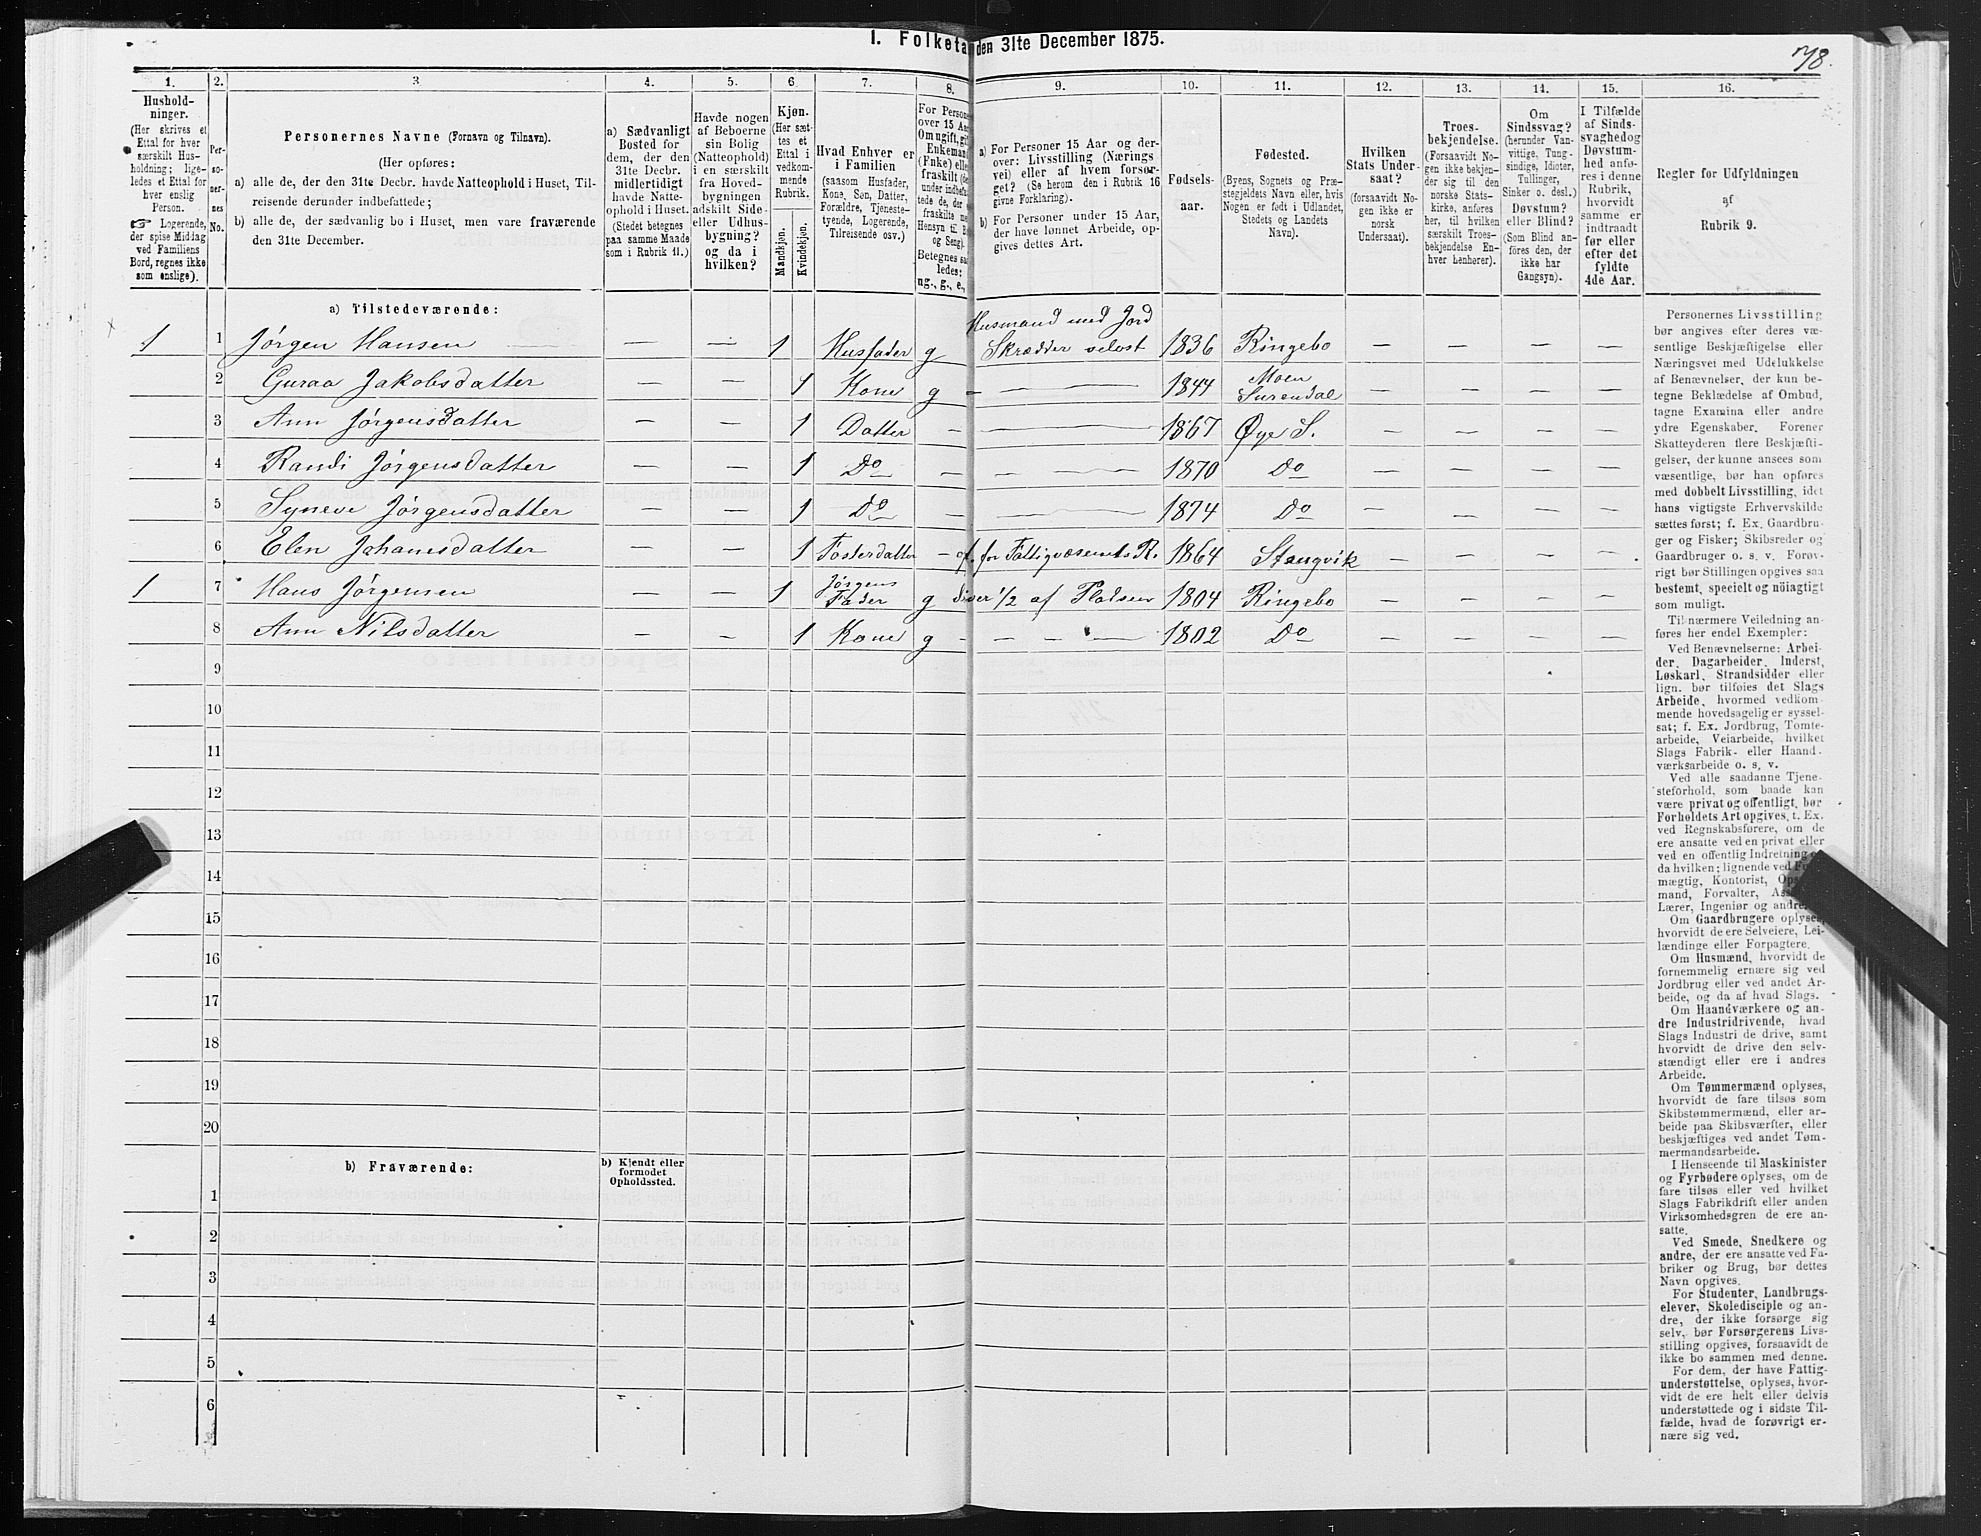 I. Folketa den 31te December 1875.
718.
1. 2. 3. 4. 5. 6 7. 8. 9. 10. 11. 12. 13. 14. 15. 16.
Hushold-
ninger.
(Her skrives et
Ettal for hver
særskilt Hus-
holdning; lige-
ledes et Ettal for
hver enslig
Person.
☞ Logerende,
der spise Middag
ved Familiens
Bord, regnes ikke
som enslige).
Per-
so-
ner-
nes
No.
Personernes Navne (Fornavn og Tilnavn).
(Her opføres:
a) alle de, der den 31te Decbr. havde Natteophold i Huset, Til-
reisende derunder indbefattede;
b) alle de, der sædvanlig bo i Huset, men vare fraværende
den 31te December.
a) Sædvanligt
Bosted for
dem, der den
31te Decbr.
midlertidigt
havde Natte-
ophold i Huset.
(Stedet betegnes
paa samme Maade
som i Rubrik 11.)
Havde nogen
af Beboerne
sin Bolig
(Natteophold)
i en særskilt
fra Hoved-
bygningen
adskilt Side-
eller Udhus-
bygning?
og da i
hvilken?
Kjøn.
(Her sæt-
tes et
Ettal i
vedkom-
mende
Rubrik.
Mandkjøn.
Kvindekjøn.
Hvad Enhver er
i Familien
(saasom Husfader,
Kone, Søn, Datter,
Forældre, Tjeneste-
tyende, Logerende,
Tilreisende osv.)
For Persone
over 15 Aa
Om ugift, gi
Enkeman
(Fnke) elle
fraskilt (de
under indbef
tede de,
fraskilte me
Hensyn til B
og Seng).
Betegnes sa
ledes:
ug., g., e.,
a) For Personer 15 Aar og der-
over: Livsstilling (Nærings
vei) eller af hvem forsør-
get? (Se herom den i Rubrik 16
givne Forklaring).
b) For Personer under 15 Aar,
der have lønnet Arbeide, op-
gives dettes Art.
Fødsels-
aar.
Fødested.
(Byens, Sognets og Præ-
stegjeldets Navn eller, hvis
Nogen er født i Udlandet,
Stedets og Landets
Navn).
Hvilken
Stats Under-
saat?
(forsaavidt No-
gen ikke er
norsk
Undersaat).
Troes-
bekjendelse.
(Forsaavidt No-
gen ikke bekjen-
der sig til den
norske Stats-
kirke, anføres
her, til hvilken
særskilt Troes-
bekjendelse En-
hver henhører).
Om
Sindssvag?
(herunder Van-
vittige, Tung-
sindige, Idioter,
Tullinger,
Sinker o. desl.)
Døvstum?
eller Blind?
(Som Blind an-
føres den, der
ikke har
Gangsyn).
I Tilfælde
af Sinds-
svaghed og
Døvstum-
hed anfø-
res i denne
Rubrik,
hvorvidt
samme er
indtraadt
før eller
efter det
fyldte
4de Aar.
Regler for Udfyldningen
af
Rubrik 9.
a) Tilstedeværende:
Husmand med Jord
1 1 Jørgen Hansen — — 1 Husfader g Skrædder selvst 1836 Ringebo — — — —
2 Guraa Jakobsdatter — — 1 Kone g — 1844 Moen
Surendal — — — —
3 Ann Jørgensdatter — — 1 Datter — — 1867 Øye S. — — — —
4 Randi Jørgensdatter — — 1 Do — — 1870 Do — — — —
5 Syneve Jørgensdatter — — 1 Do — — 1874 Do — — — —
6 Elen Johanesdatter — — 1 Fosterdatter — f. for Fattigvæsenets R. 1864 Stangvik — — — —
1 7 Hans Jørgensen — — 1 Jørgens
Fader g 1/2 af Pladsen 1804 Ringebo — — — —
8 Ann Nilsdatter — — 1 Kone g — — — 1802 Do — — — —
9
10
11
12
13
14
15
16
17
18
19
20
b) Fraværende:
b) Kjendt eller
formodet
Opholdssted.
1
2
3
4
5
6
Personernes Livsstilling
bør angives efter deres væ-
sentlige Beskjæftigelse eller
Næringsvei med Udelukkelse
af Benævnelser, der kun be-
tegne Beklædelse af Ombud,
tagne Examina eller andre
ydre Egenskaber. Forener
Skatteyderen flere Beskjæfti-
gelser, der kunne ansees som
væsentlige, bør han opføres
med dobbelt Livsstilling, idet
hans vigtigste Erhvervskilde
sættes først; f. Ex. Gaardbru-
ger og Fisker; Skibsreder og
Gaardbruger o. s. v. Forøv-
rigt bør Stillingen opgives saa
bestemt, specielt og nøiagtig
som muligt.
Til nærmere Veiledning an-
føres her endel Exempler:
Ved Benævnelserne: Arbei-
der, Dagarbeider, Inderst,
Løskarl, Strandsidder eller
lign. bør tilføies det Slags
Arbeide, hvormed vedkom-
mende hovedsagelig er syssel-
sat; f. Ex. Jordbrug, Tomte-
arbeide, Veiarbeide, hvilket
Slags Fabrik- eller Haand-
værksarbeide o. s. v.
Ved alle saadanne Tjene-
steforhold, som baade kan
være privat og offentligt, bør
Forholdets Art opgives, f. Ex.
ved Regnskabsførere, om de
ere ansatte ved en privat eller
ved en offentlig Indretning
da hvilken; lignende ved
mægtig, Kontorist,
mand, Forvalter,
Lærer, Ingeniør og andre.
Om Gaardbrugere oplyses,
hvorvidt de ere Selveiere, Lei-
lændinge eller Forpagtere.
Om Husmænd, hvorvidt de
fornemmelig ernære sig ved
Jordbrug eller ved andet Ar-
beide, og da af hvad Slags.
Om Haandværkere og an-
dre Industridrivende, hvad
Slags Industri de drive, samt
hvorvidt de drive den selv-
stændigt eller ere i andres
Arbeide.
Om Tømmermænd oplyses,
hvorvidt de fare tilsøs som
Skibstømmermænd, eller ar-
beide paa Skibsværfter, eller
beskjæftiges ved andet Tøm-
mermandsarbeide.
I Henseende til Maskinister
og Fyrbødere oplyses, om de
fare tilsøs eller ved hvilket
Slags Fabrikdrift eller anden
Virksomhedsgren de ere an-
satte.
Ved Smede, Snedkere og
andre, der ere ansatte ved Fa-
briker og Brug, bør dettes
Navn opgives.
For Studenter, Landbrugs-
elever, Skoledisciple og an-
dre, der ikke forsørge sig
selv, bør Forsørgerens Livs-
stilling opgives, forsaavidt de
ikke bo sammen med denne.
For dem, der have Fattig-
understøttelse, oplyses, hvor-
vidt de ere helt eller delvis
understøttede og i sidste Til-
fælde, hvad de forøvrigt er-
nære sig ved.